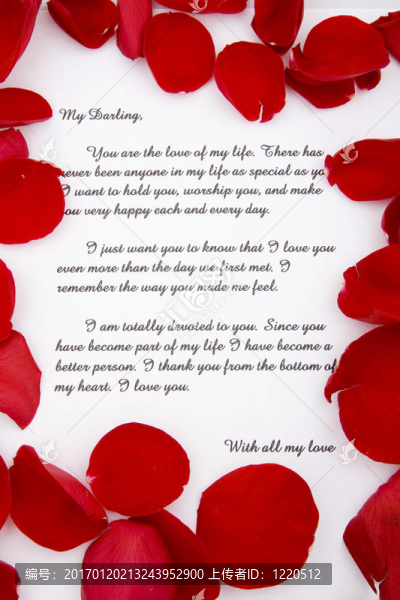 My Darling,
You are the love of my life. There has
never been anyone in my life as special as yo
I want to hold you, worship you, and make
you very happy each and every day.
I just want you to know that I love you
even more than the day we first met. I
remember the way you made me feel.
I am totally devoted to you. Since you
have become part of my life I have become a
better person. I thank you from the bottom of
my heart. I love you.
With all my love
编号:20170120213243952900 上传者ID: 1220512